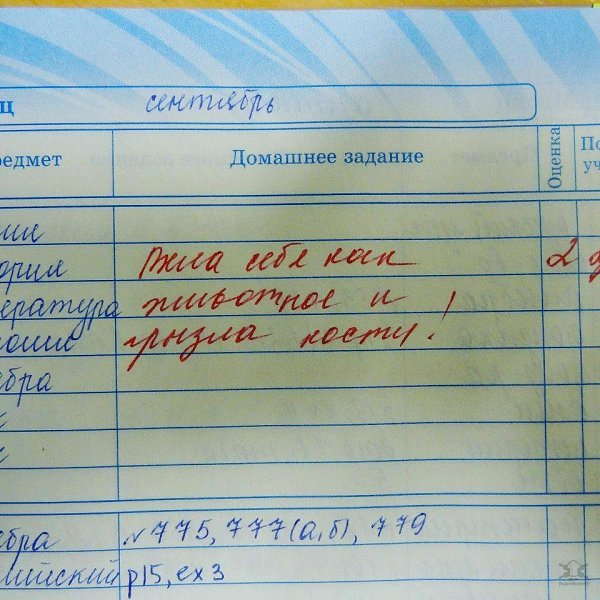 ц сентябрь
редмет Домашнее задание Оценка По
уч
ория Вела себя как 2
ература животное и
грызла кости!
ебра
ебра №775, 777(а,б), 779
лийский p15, ex3